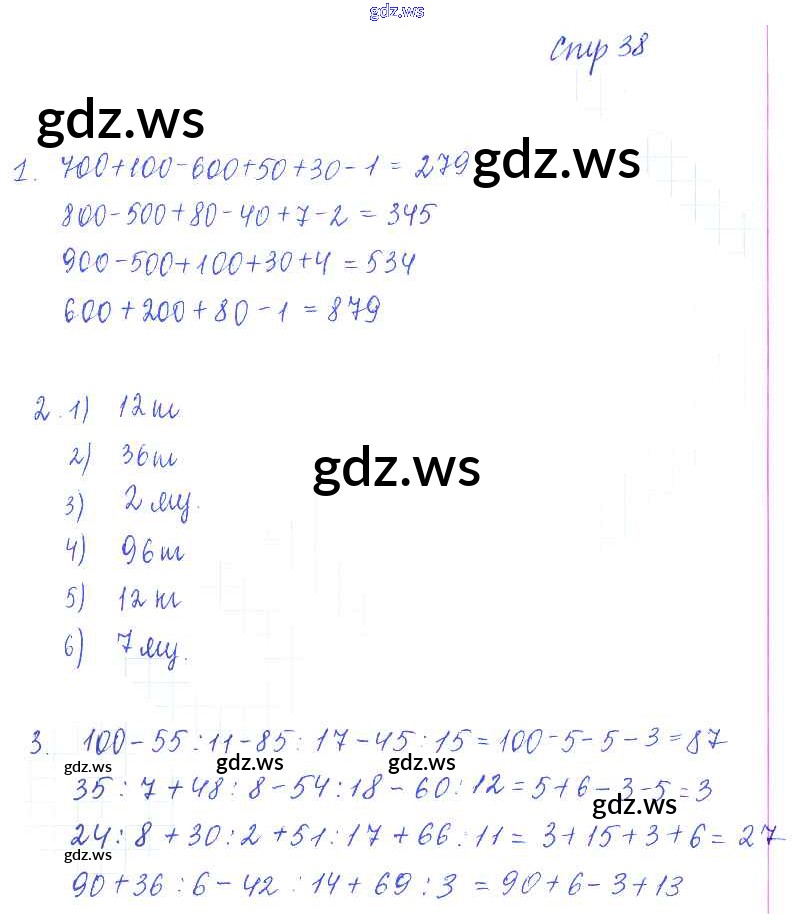 gdz.ws
Стр 38
gdz.ws
1. 700+100-600+50+30-1 = 279
gdz.ws
800-500+80-40+7-2 = 345
900-500+100+30+4 = 534
600+200+80-1 = 879
2. 1) 12 ш
2) 36 ш
gdz.ws
3) 2 ящ.
4) 96 ш
5) 12 ш
6) 7 ящ.
3. 100-55:11-85:17-45:15 = 100-5-5-3 = 87
gdz.ws gdz.ws gdz.ws
35:7+48:8-54:18-60:12 = 5+6-3-5 = 3
gdz.ws
24:8+30:2+51:17+66:11 = 3+15+3+6 = 27
gdz.ws
90+36:6-42:14+69:3 = 90+6-3+13